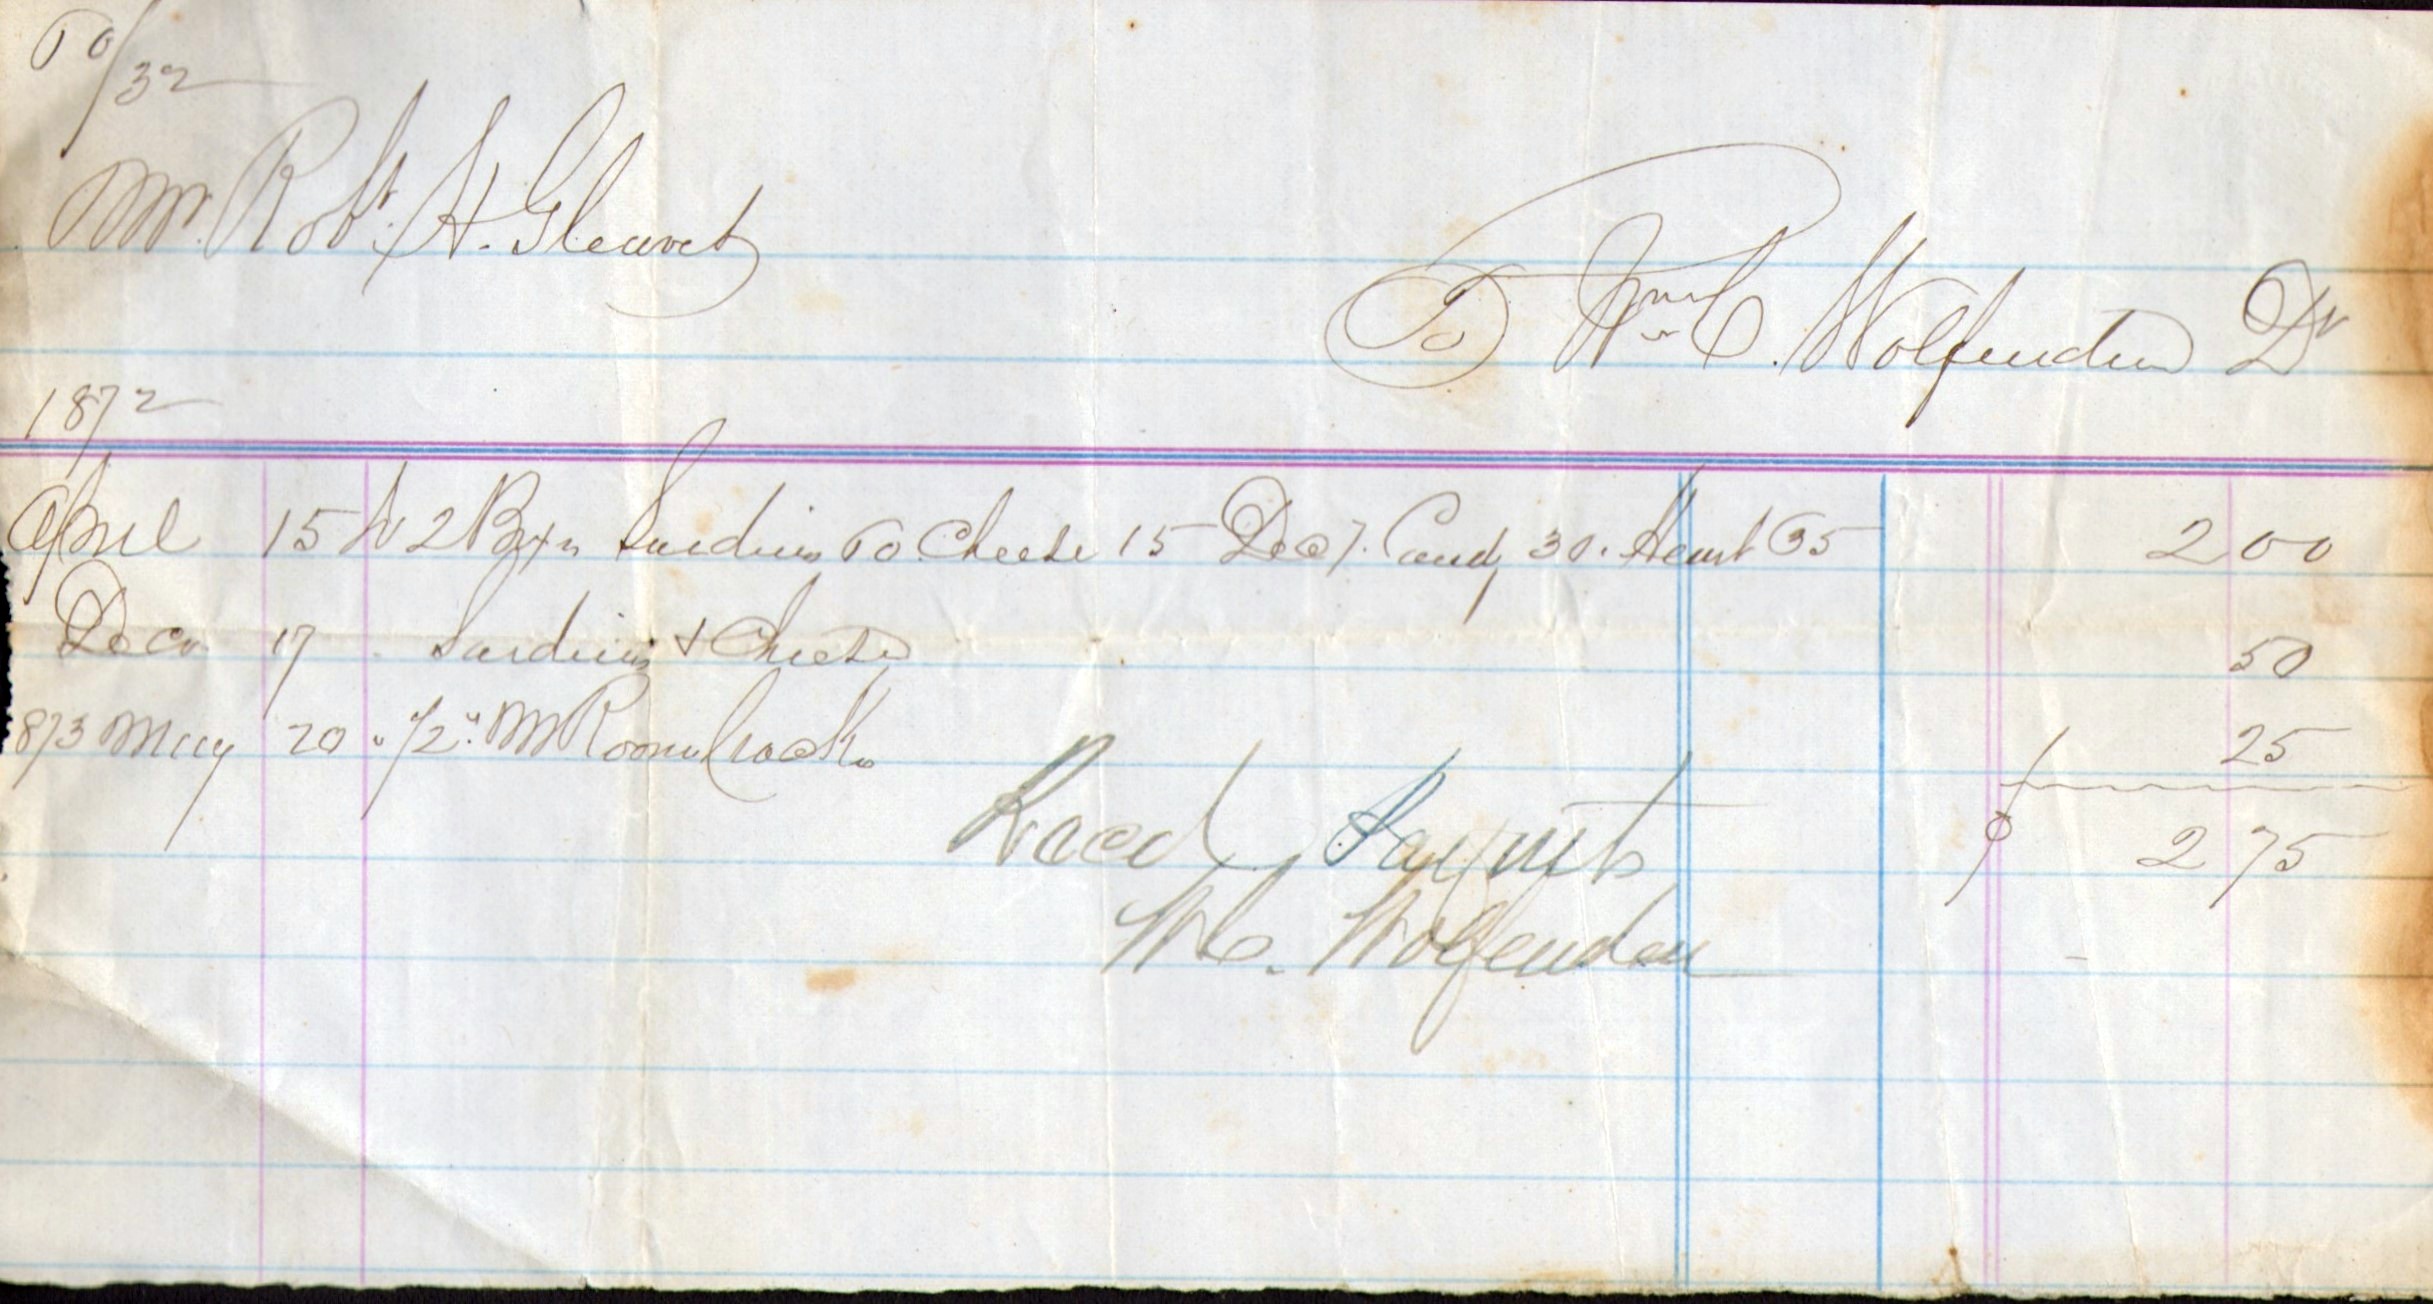 60/32
Mr. Robt. H. Gleaves
To Wm C. Wolfenden Dr
1872
April 15 To 2 Bxs Sardines 60 Cheese 15 Candy 30. 35 2 00
Dec 17 Sardines & Cheese 50
873 May 20 " 1/2 " 25
$ 2 75
Recd Paymts
W C. Wolfenden